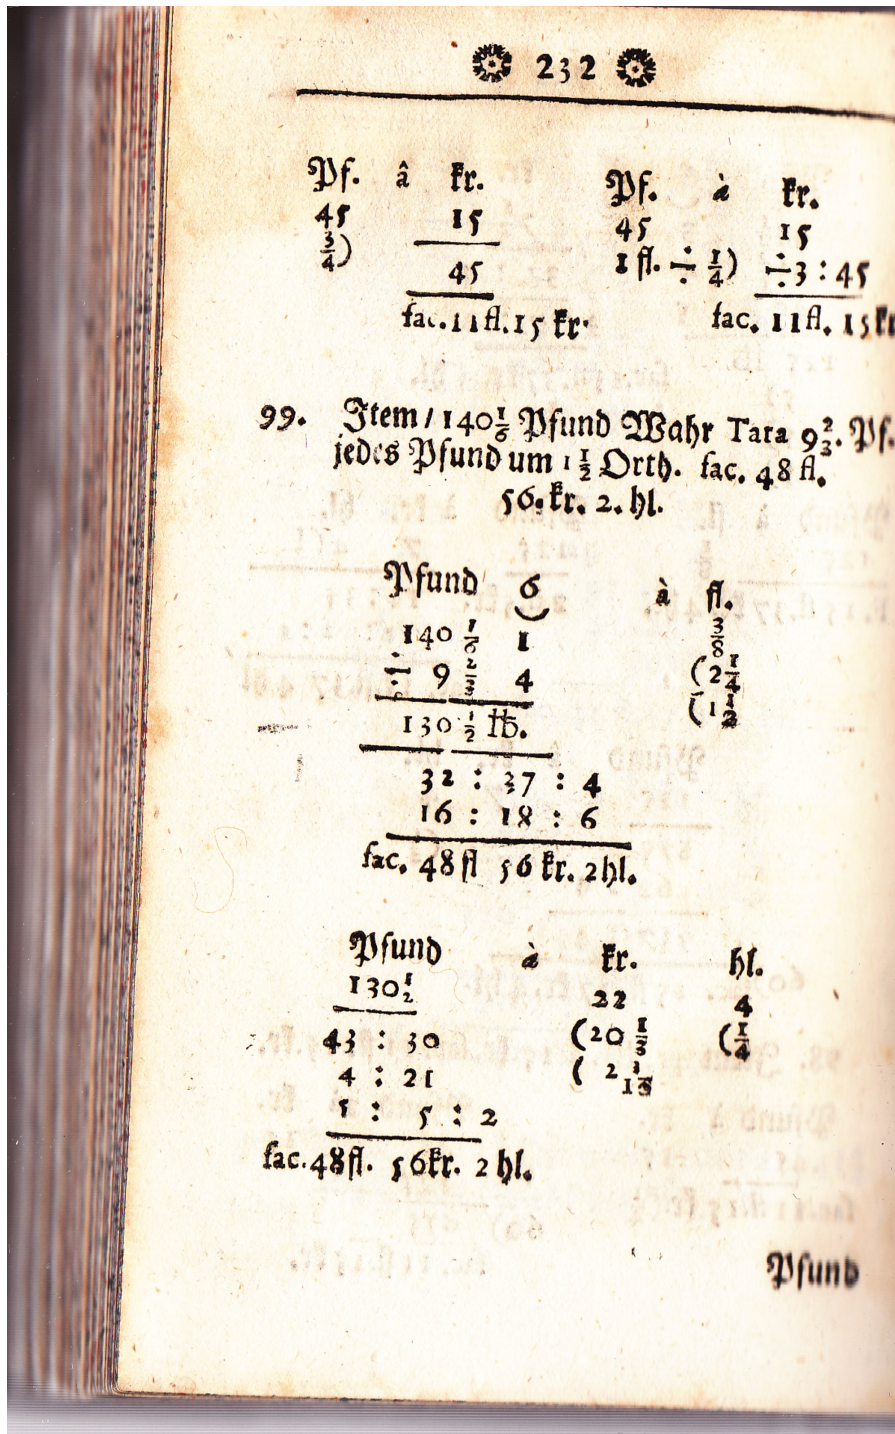 232
Pf. â kr.
45 15
3/4)
45
fac. 11 fl. 15 kr.
Pf. à kr.
45 15
1 fl. ÷ 1/4) ÷ 3 : 45
fac. 11 fl. 15 kr
99. Item / 140 1/6 Pfund Wahr Tara 9 2/3. Pf.
jedes Pfund um 1 1/2 Orth. fac. 48 fl.
56. kr. 2. hl.
Pfund 6 à fl.
140 1/6 1 3/8
÷ 9 2/3 4 (2 1/4
130 1/2 ℔. (1 1/2
32 : 37 : 4
16 : 18 : 6
fac. 48 fl 56 kr. 2 hl.
Pfund à kr. hl.
130 1/2 22 4
43 : 30 (20 1/3 (1/4
4 : 21 ( 2
5 : 5 : 2
fac. 48 fl. 56 kr. 2 hl.
Pfund